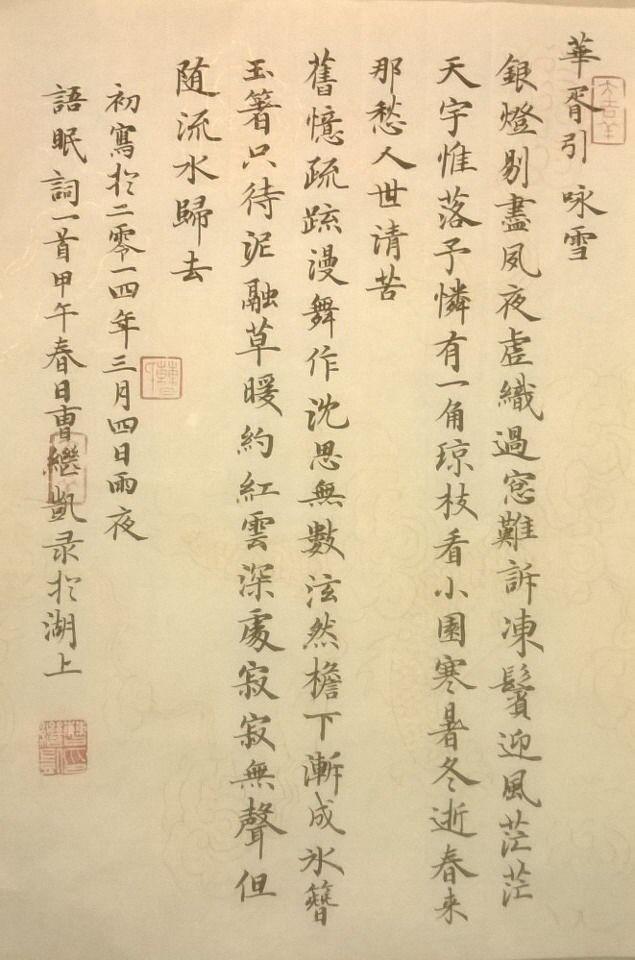 華胥引 咏雪
銀燈剔盡夙夜虛織過窓難訴凍鬢迎風茫茫
天宇惟落予憐有一角琼枝看小園寒暑冬逝春来
那愁人世清苦
舊憶疏疏漫舞作沈思無數泫然檐下漸成氷簪
玉箸只待泥融草暖約紅雲深處寂寂無聲但
随流水歸去
初寫於二零一四年三月四日雨夜
語眠詞一首甲午春日曹繼凱录於湖上
大吉羊